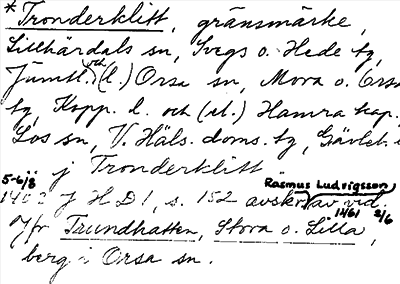 * Tronderklitt, gränsmärke,
Lillhärdals sn, Svegs o. Hede tg,
Jämtl. och (l.) Orsa sn, Mora o. Orsa
tg, Kopp. l. och (el.) Hamra kap.
Los sn, V. Häls. doms. tg, Gävleb. l.
j Tronderklitt
5-6/8 Rasmus Ludvigsson
1402 J H D 1, s. 152 avskr. av vid.
12/61 2/6
Jfr Trundhatten, Stora o. Lilla,
berg i Orsa sn.